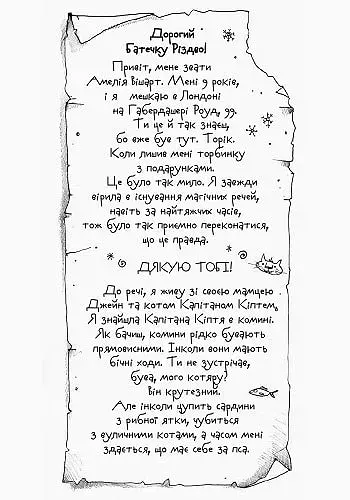 Дорогий
Батечку Різдво!
Привіт, мене звати
Амелія Вішарт. Мені 9 років,
і я мешкаю в Лондоні
на Габердашері Роуд, 99.
Ти це й так знаєш,
бо вже був тут. Торік.
Коли лишив мені торбинку
з подарунками.
Це було так мило. Я завжди
вірила в існування магічних речей,
навіть за найтяжчих часів,
тож було так приємно переконатися,
що це правда.
ДЯКУЮ ТОБІ!
До речі, я живу зі своєю мамцею
Джейн та котом Капітаном Кіптем,
Я знайшла Капітана Кіптя в комині.
Як бачиш, комини рідко бувають
прямовисними. Інколи вони мають
бічні ходи. Ти не зустрічав,
бува, мого котяру?
він крутезний.
Але інколи цупить сардини
з рибної ятки, чубиться
з вуличними котами, а часом мені
здається, що має себе за пса.